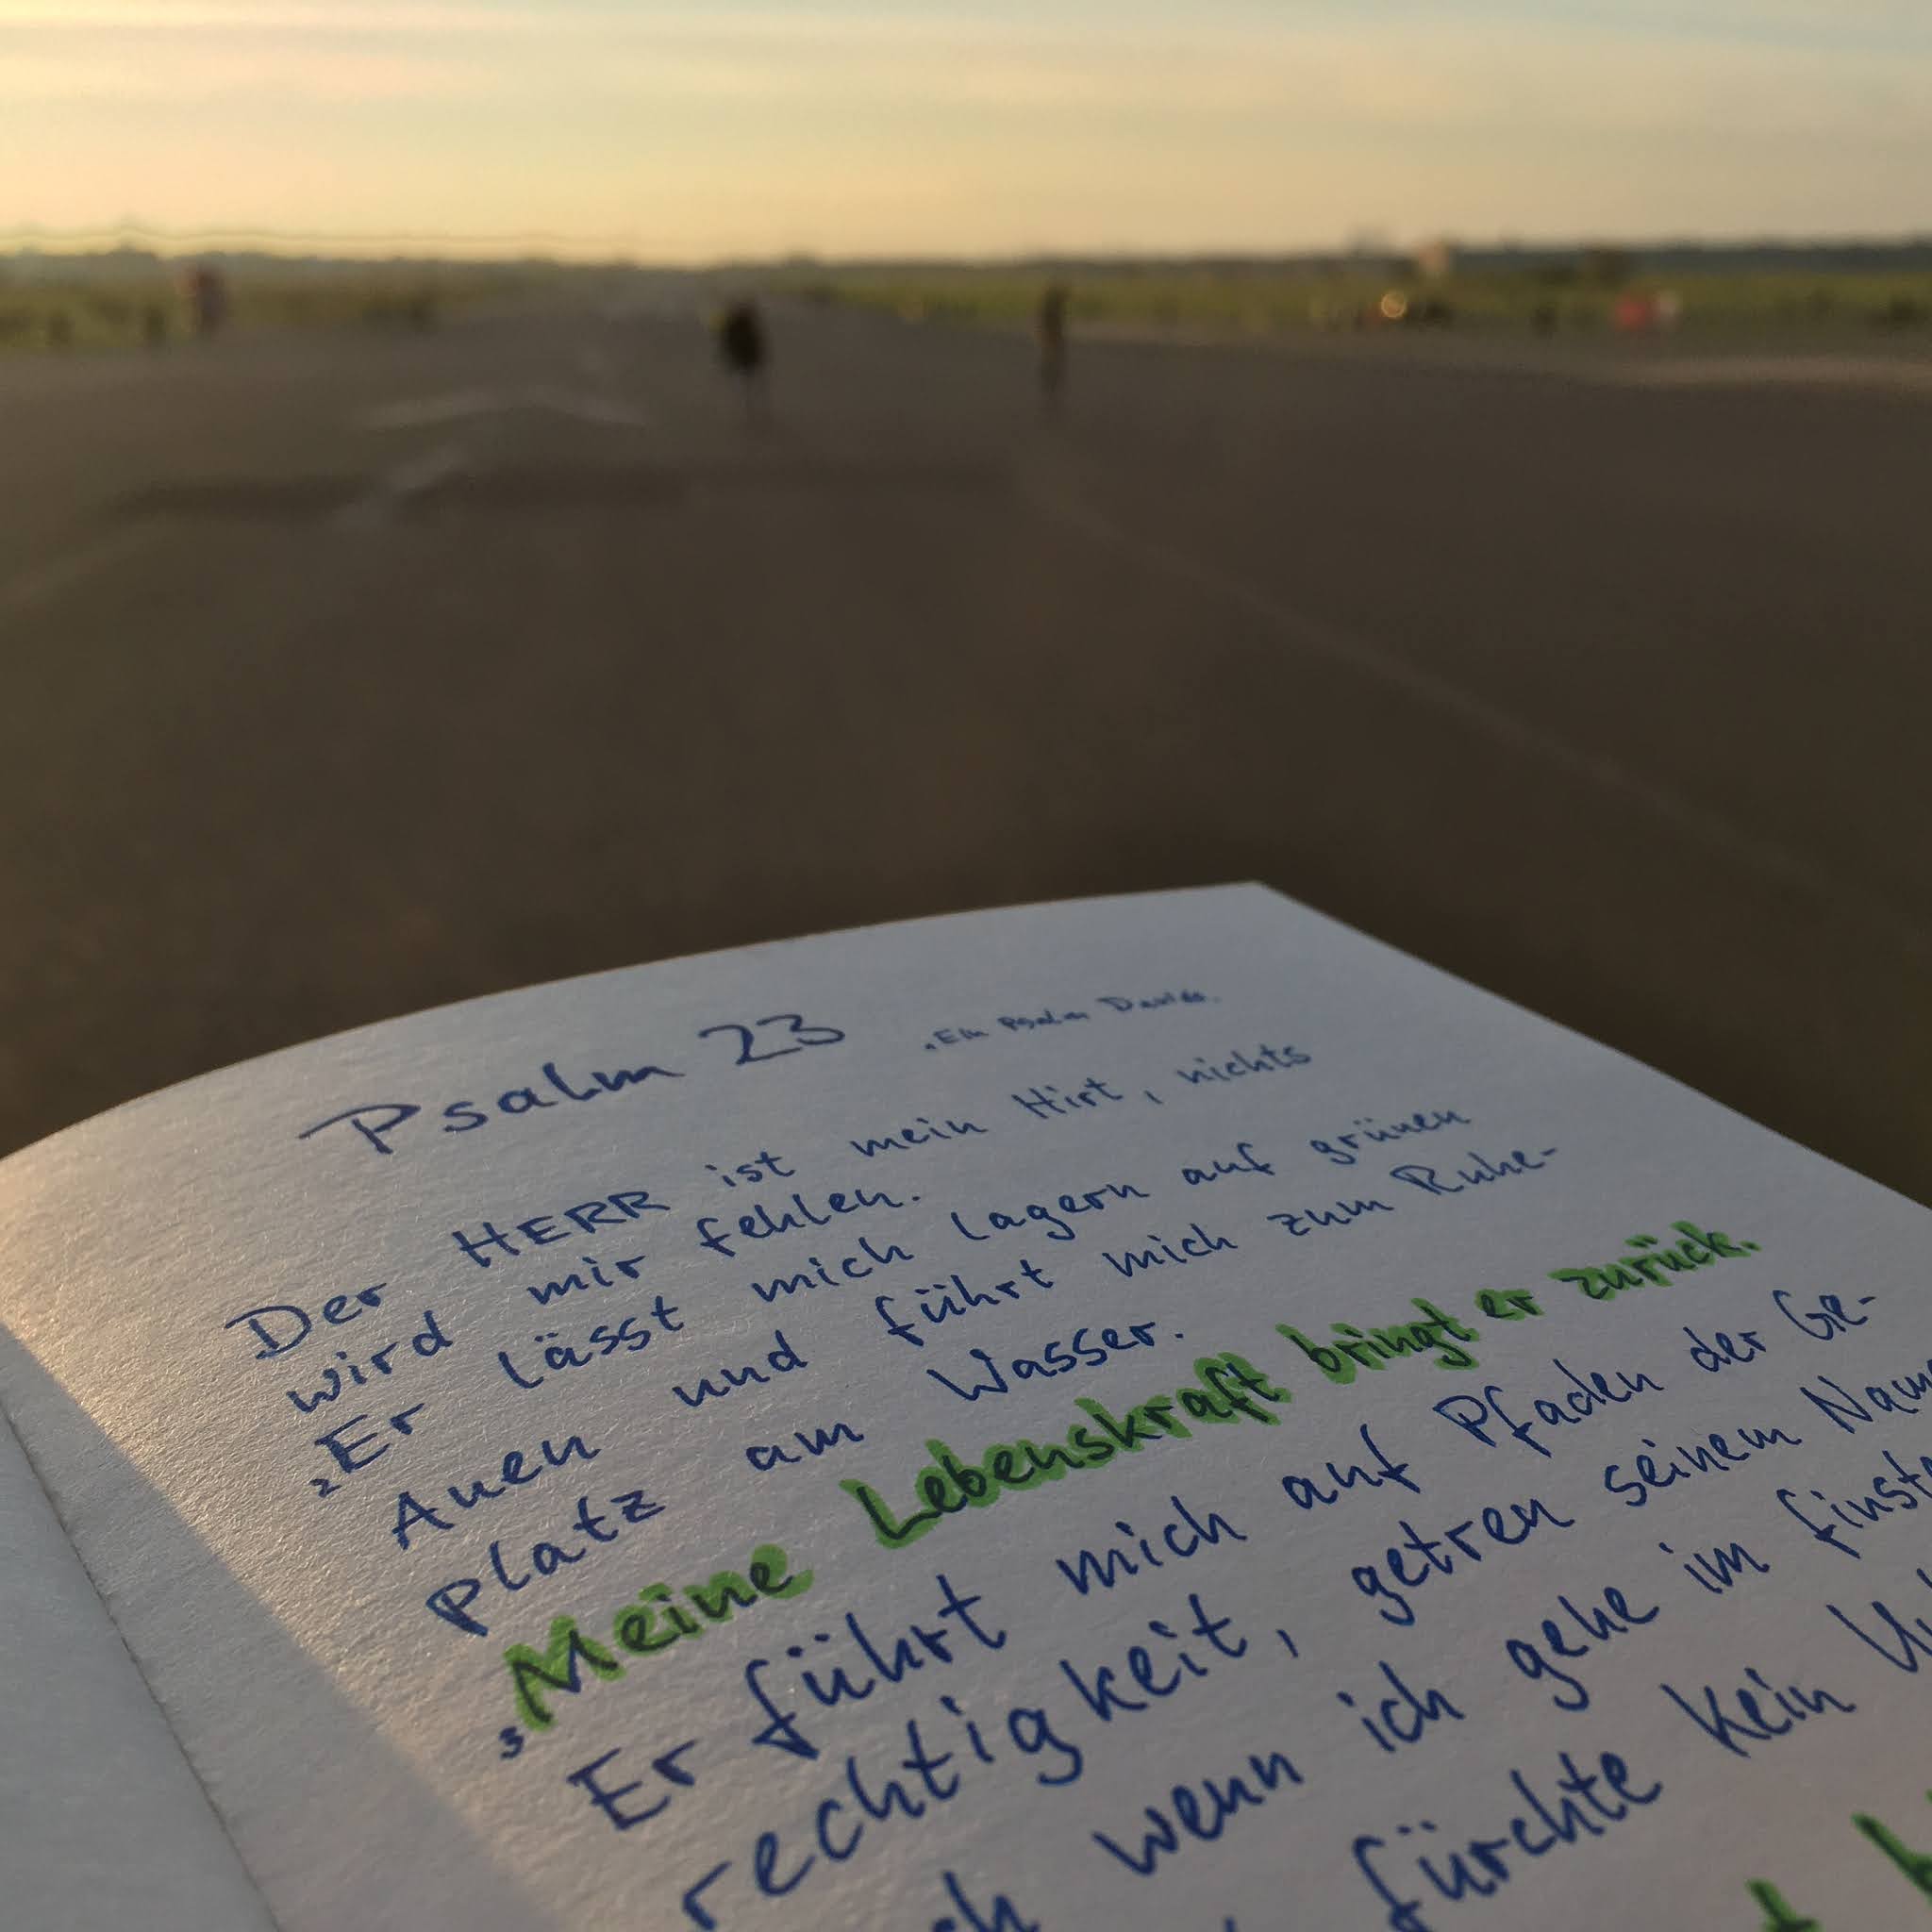 Psalm 23 ¹Ein Psalm Davids.
Der HERR ist mein Hirt, nichts
wird mir fehlen.
²Er lässt mich lagern auf grünen
Auen und führt mich zum Ruhe-
platz am Wasser.
³Meine Lebenskraft bringt er zurück.
Er führt mich auf Pfaden der Ge-
rechtigkeit, getreu seinem
wenn ich gehe im
fürchte kein